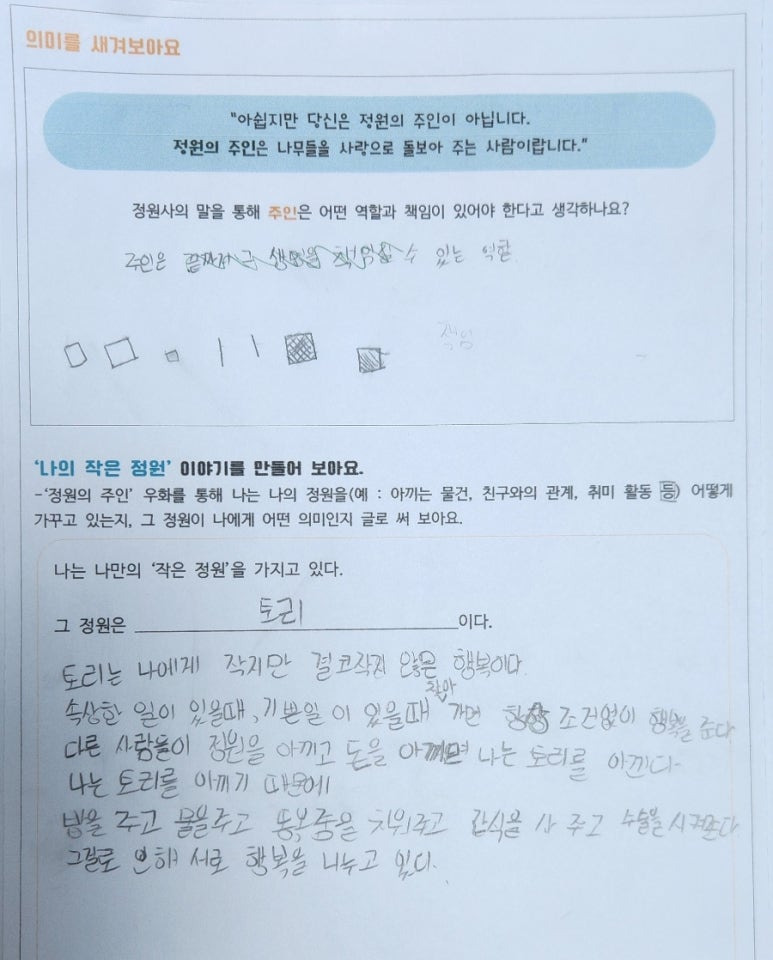 의미를 새겨보아요
"아쉽지만 당신은 정원의 주인이 아닙니다.
정원의 주인은 나무들을 사랑으로 돌보아 주는 사람이랍니다."
정원사의 말을 통해 주인은 어떤 역할과 책임이 있어야 한다고 생각하나요?
주인은 끝까지 생명을 책임질 수 있는 역할
책임
'나의 작은 정원' 이야기를 만들어 보아요.
-'정원의 주인' 우화를 통해 나는 나의 정원을(예 : 아끼는 물건, 친구와의 관계, 취미 활동 등) 어떻게
가꾸고 있는지, 그 정원이 나에게 어떤 의미인지 글로 써 보아요.
나는 나만의 '작은 정원'을 가지고 있다.
그 정원은 토리 이다.
토리는 나에게 작지만 결코작지 않은 행복이다
속상한 일이 있을때, 기쁜일 이 있을때 찾아 가면 항상 조건없이 행복을 준다
다른 사람들이 정원을 아끼고 돈을 아끼면 나는 토리를 아낀다
나는 토리를 아끼기 때문에
밥을 주고 물을주고 똥오줌을 치워주고 간식을 사 주고 수술을 시켜준다
그걸로 인해 서로 행복을 나누고 있다.